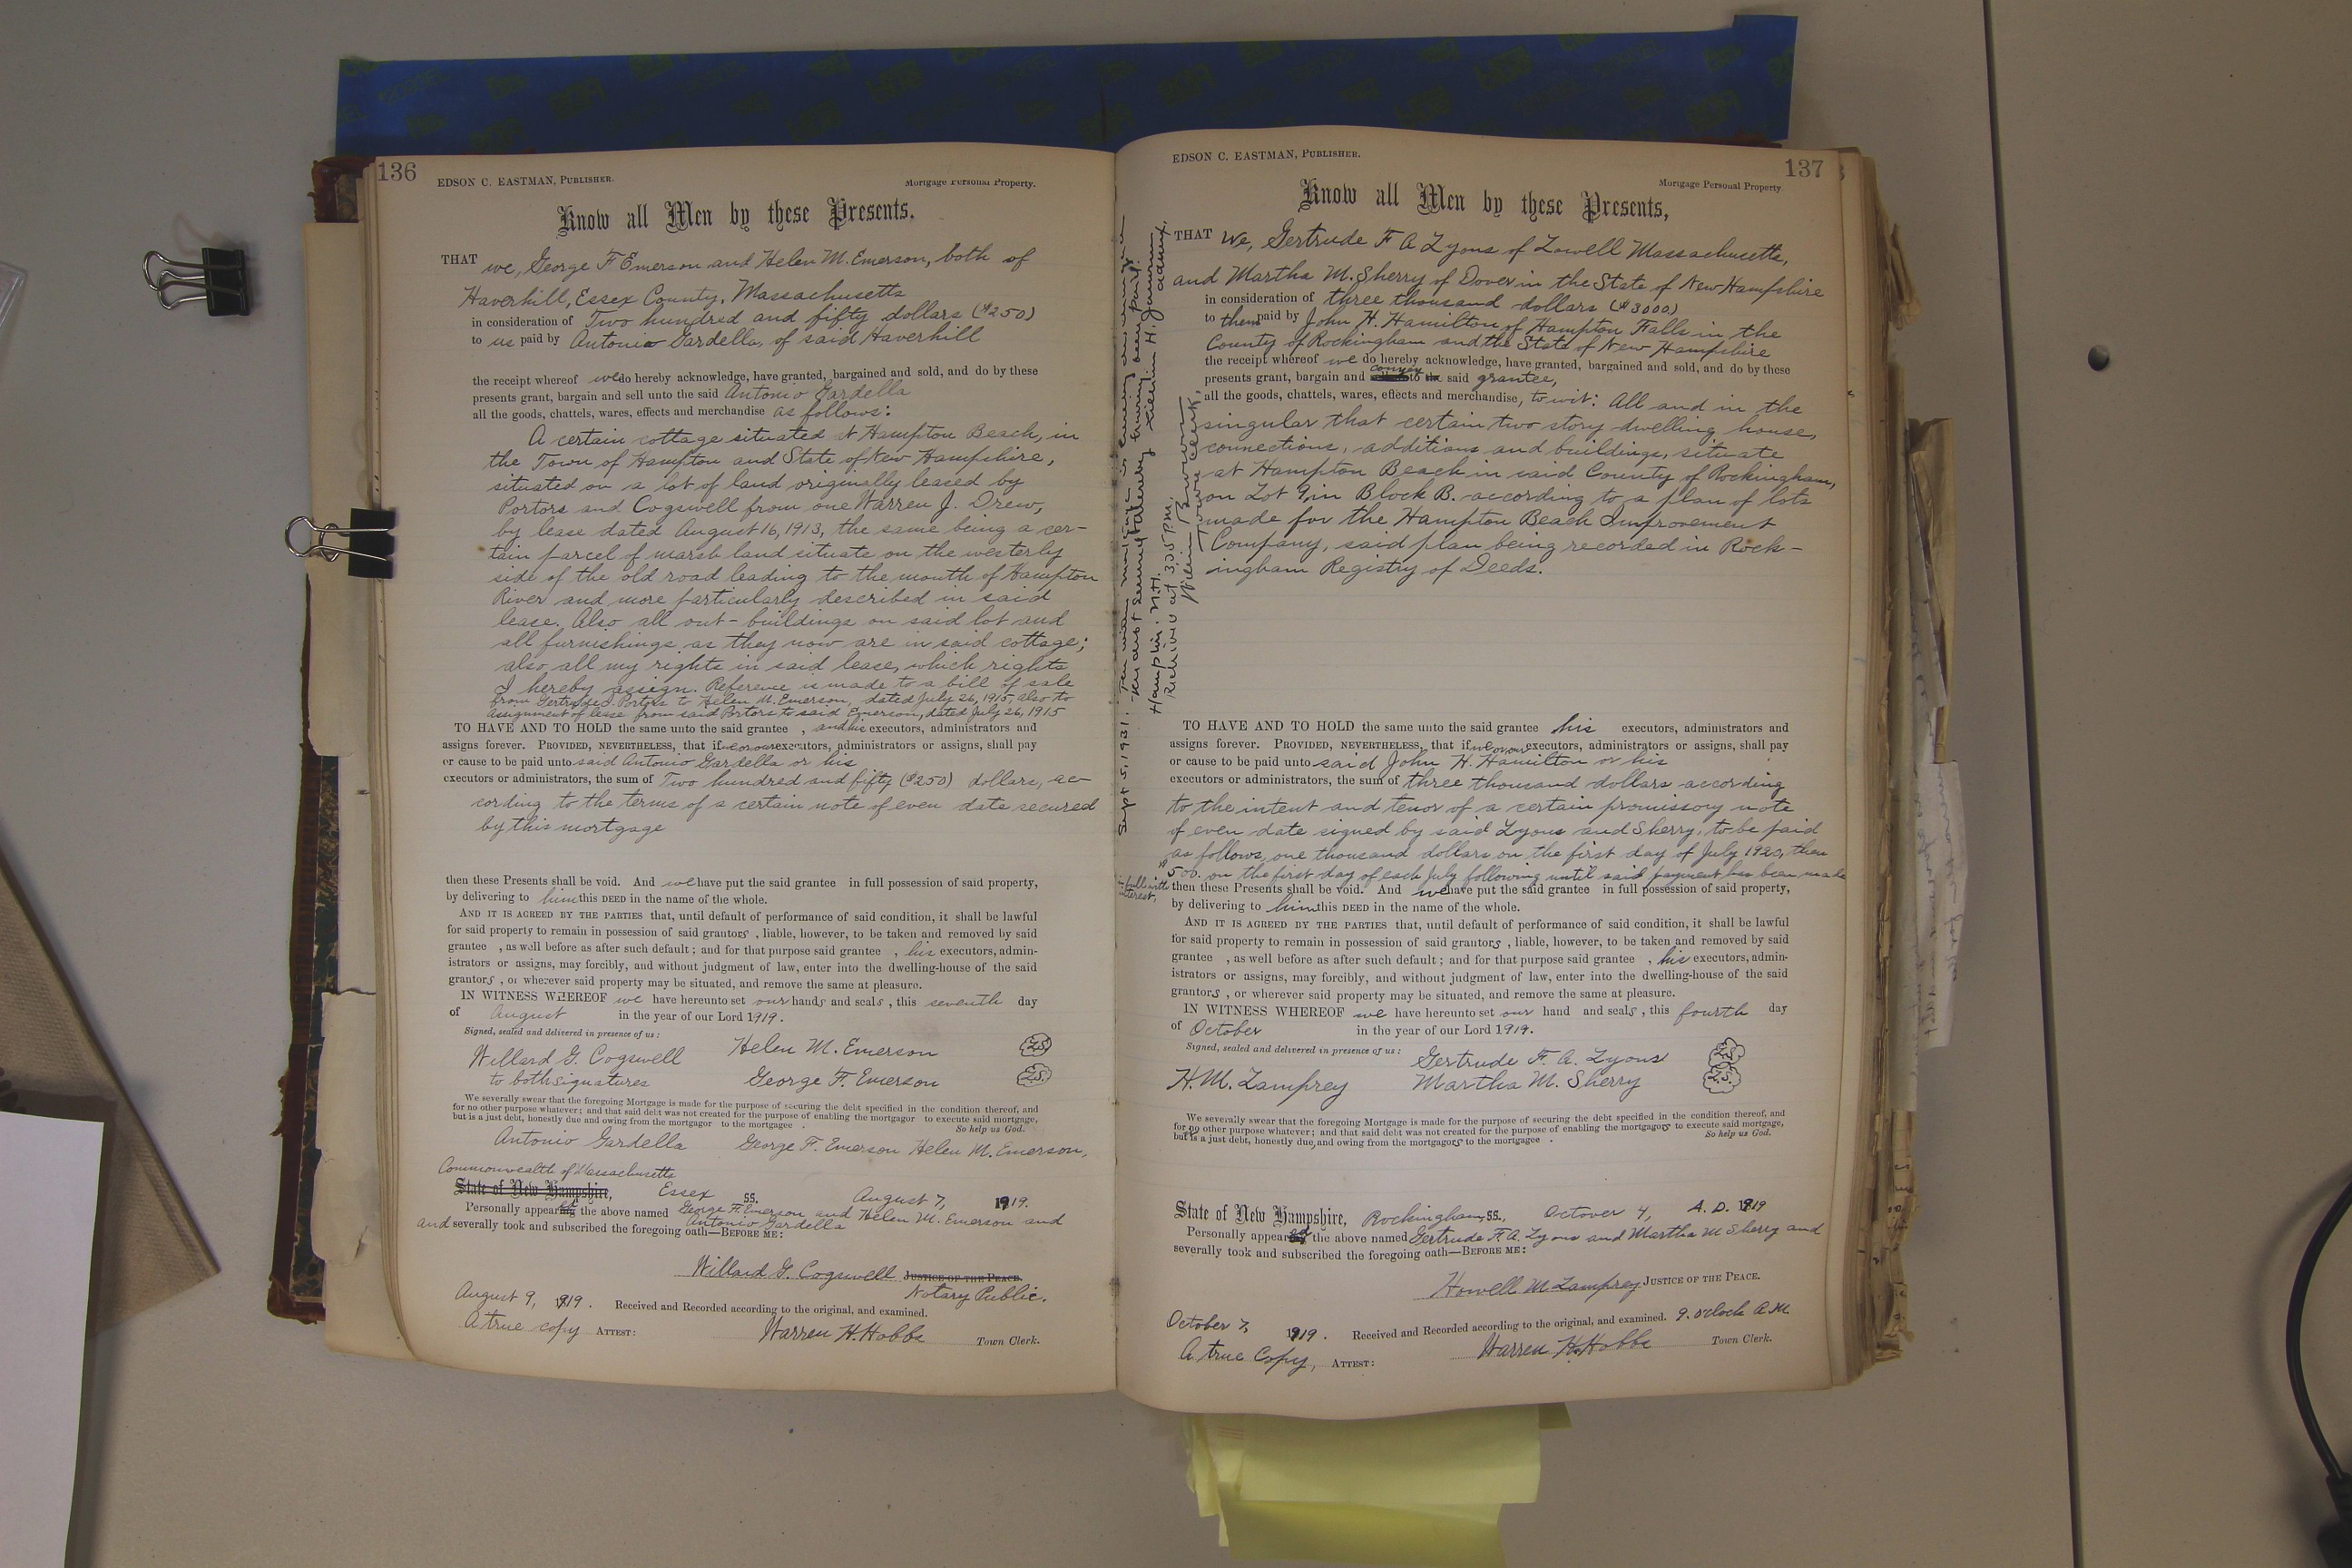 136
EDSON C. EASTMAN, PUBLISHER.
Mortgage Personal Property.
Know all Men by these Presents.
THAT we, George F Emerson and Helen M. Emerson, both of
Haverhill, Essex County, Massachusetts
in consideration of Two hundred and fifty dollars ($250)
to us paid by Antonio Gardella, of said Haverhill
the receipt whereof we do hereby acknowledge, have granted, bargained and sold, and do by these
presents grant, bargain and sell unto the said Antonio Gardella
all the goods, chattels, wares, effects and merchandise as follows:
A certain cottage situated at Hampton Beach, in
the Town of Hampton and State of New Hampshire,
situated on a lot of land originally leased by
Portors and Cogswell from one Warren J. Drew,
by lease dated August 16, 1913, the same being a cer-
tain parcel of marsh land situate on the westerly
side of the old road leading to the mouth of Hampton
River and more particularly described in said
lease. Also all out-buildings on said lot and
all furnishings as they now are in said cottage;
also all my rights in said lease, which rights
I hereby assign. Reference is made to a bill of sale
from Gertrude I. Portors to Helen M. Emerson, dated July 26, 1915, also to
assignment of lease from said Portors to said Emerson, dated July 26, 1915
TO HAVE AND TO HOLD the same unto the said grantee , and his executors, administrators and
assigns forever. PROVIDED, NEVERTHELESS, that if we or our executors, administrators or assigns, shall pay
or cause to be paid unto said Antonio Gardella or his
executors or administrators, the sum of Two hundred and fifty ($250) dollars, ac-
cording to the terms of a certain note of even date secured
by this mortgage
then these Presents shall be void. And we have put the said grantee in full possession of said property,
by delivering to him this DEED in the name of the whole.
AND IT IS AGREED BY THE PARTIES that, until default of performance of said condition, it shall be lawful
for said property to remain in possession of said grantors , liable, however, to be taken and removed by said
grantee , as well before as after such default; and for that purpose said grantee , his executors, admin-
istrators or assigns, may forcibly, and without judgment of law, enter into the dwelling-house of the said
grantors , or wherever said property may be situated, and remove the same at pleasure.
IN WITNESS WHEREOF we have hereunto set our hands and seals , this seventh day
of August in the year of our Lord 1919.
Signed, sealed and delivered in presence of us:
Willard G. Cogswell Helen M. Emerson L.S.
to both signatures George F. Emerson L.S.
We severally swear that the foregoing Mortgage is made for the purpose of securing the debt specified in the condition thereof, and
for no other purpose whatever; and that said debt was not created for the purpose of enabling the mortgagor to execute said mortgage,
but is a just debt, honestly due and owing from the mortgagor to the mortgagee . So help us God.
Antonio Gardella George F. Emerson Helen M. Emerson,
Commonwealth of Massachusetts
State of New Hampshire, Essex SS. August 7, 1919.
Personally appeared the above named George F. Emerson and Helen M. Emerson and
Antonio Gardella
and severally took and subscribed the foregoing oath—BEFORE ME:
Willard G. Cogswell JUSTICE OF THE PEACE.
Notary Public.
August 9, 1919. Received and Recorded according to the original, and examined.
A true copy ATTEST: Warren H. Hobbs Town Clerk.
137
EDSON C. EASTMAN, PUBLISHER.
Mortgage Personal Property
Know all Men by these Presents,
THAT We, Gertrude F A Lyons of Lowell Massachusetts,
and Martha M. Sherry of Dover in the State of New Hampshire
in consideration of three thousand dollars ($3000)
to them paid by John H. Hamilton of Hampton Falls in the
County of Rockingham and the State of New Hampshire
the receipt whereof we do hereby acknowledge, have granted, bargained and sold, and do by these
presents grant, bargain and convey to said grantee,
all the goods, chattels, wares, effects and merchandise, to wit: All and in the
singular that certain two story dwelling house,
connections, additions and buildings, situate
at Hampton Beach in said County of Rockingham,
on Lot 9, in Block B. according to a plan of lots
made for the Hampton Beach Improvement
Company, said plan being recorded in Rock-
ingham Registry of Deeds.
Sept 5, 1931.
Hampton. N.H.
Received at 3:05 P.M.
William Brown
Town Clerk.
TO HAVE AND TO HOLD the same unto the said grantee his executors, administrators and
assigns forever. PROVIDED, NEVERTHELESS, that if we or our executors, administrators or assigns, shall pay
or cause to be paid unto said John H. Hamilton or his
executors or administrators, the sum of three thousand dollars according
to the intent and tenor of a certain promissory note
of even date signed by said Lyons and Sherry, to be paid
as follows, one thousand dollars on the first day of July 1920, then
$500. on the first day of each July following until said payment has been made
in full with
interest,
then these Presents shall be void. And we have put the said grantee in full possession of said property,
by delivering to him this DEED in the name of the whole.
AND IT IS AGREED BY THE PARTIES that, until default of performance of said condition, it shall be lawful
for said property to remain in possession of said grantors , liable, however, to be taken and removed by said
grantee , as well before as after such default; and for that purpose said grantee , his executors, admin-
istrators or assigns, may forcibly, and without judgment of law, enter into the dwelling-house of the said
grantors , or wherever said property may be situated, and remove the same at pleasure.
IN WITNESS WHEREOF we have hereunto set our hand and seals , this fourth day
of October in the year of our Lord 1919.
Signed, sealed and delivered in presence of us:
Gertrude F. A. Lyons L.S.
H. M. Lamprey Martha M. Sherry L.S.
We severally swear that the foregoing Mortgage is made for the purpose of securing the debt specified in the condition thereof, and
for no other purpose whatever; and that said debt was not created for the purpose of enabling the mortgagors to execute said mortgage,
but is a just debt, honestly due and owing from the mortgagors to the mortgagee . So help us God.
State of New Hampshire, Rockingham SS., Octover 4, A. D. 1919
Personally appeared the above named Gertrude F. A. Lyons and Martha M Sherry and
severally took and subscribed the foregoing oath—BEFORE ME:
Howell M Lamprey JUSTICE OF THE PEACE.
October 7, 1919. Received and Recorded according to the original, and examined. 9. o'clock A.M.
A true Copy, ATTEST: Warren H. Hobbs Town Clerk.